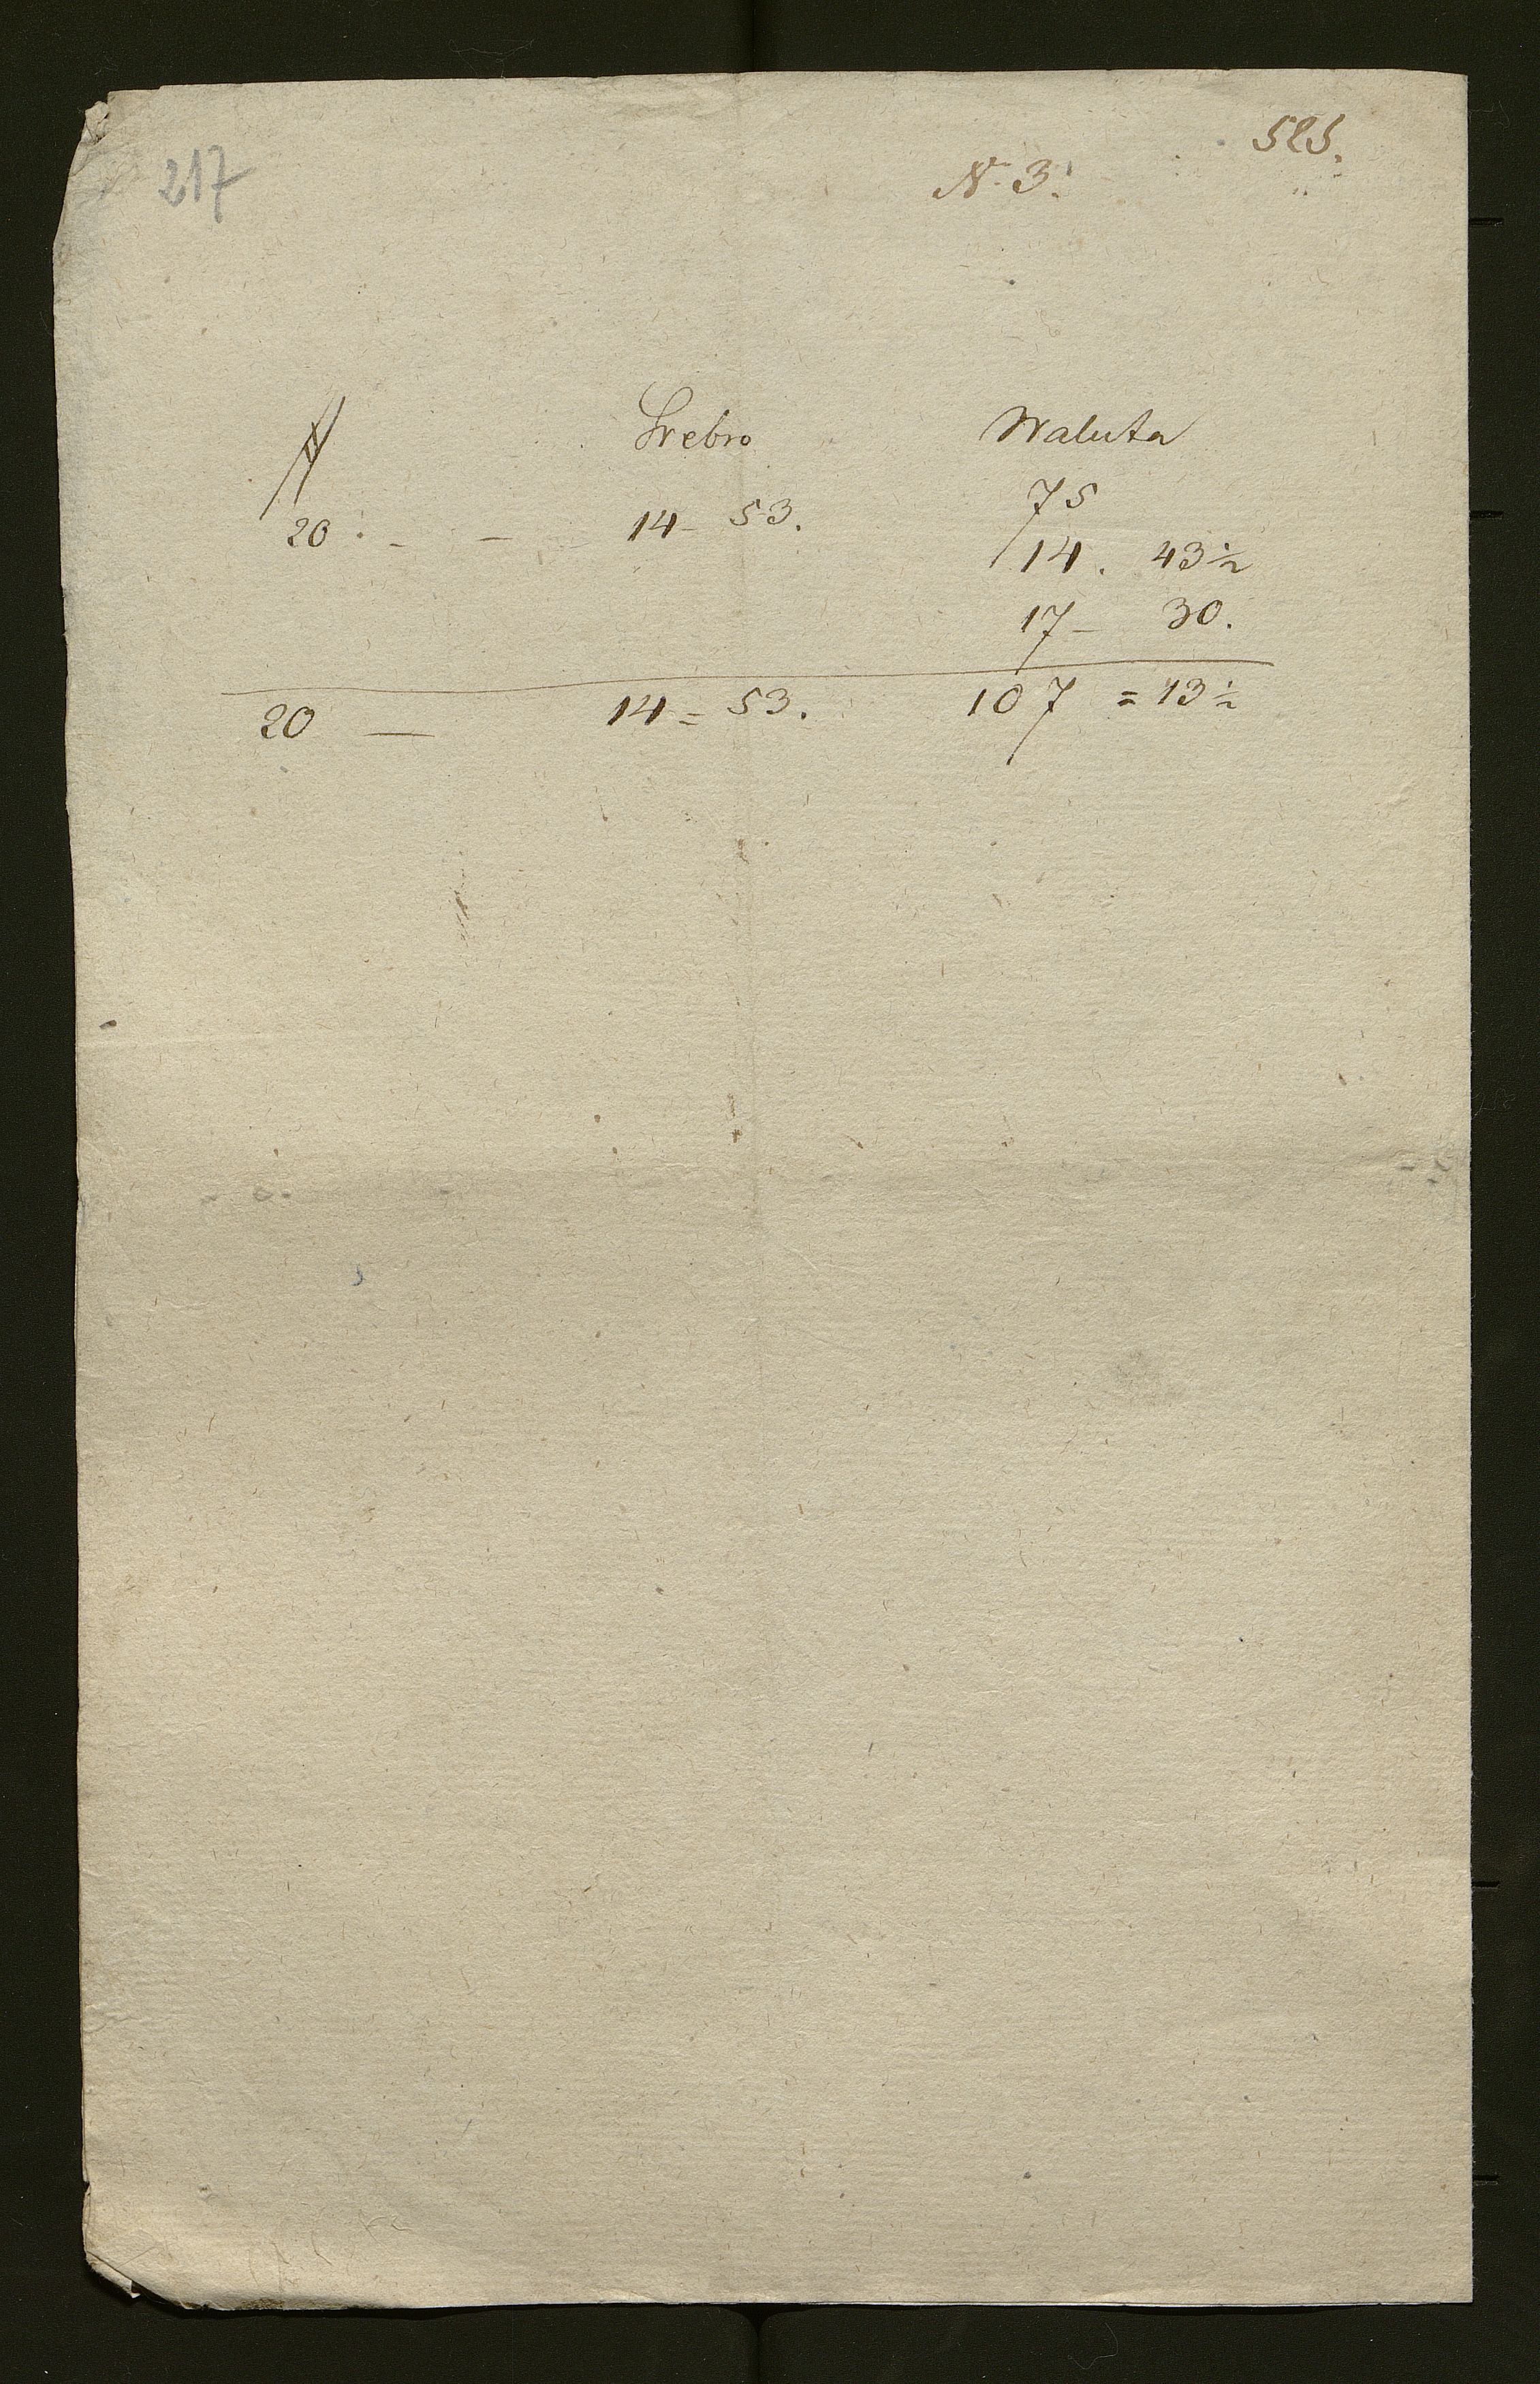 525.
217
N. 3.
# Srebro Waluta
75
20 . - - 14 - 53.
14 . 43½
17 - 30.
20 — 14 = 53. 107 = 13½